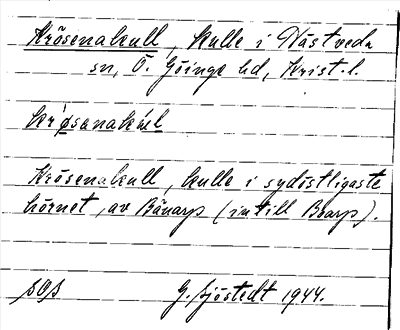 Krösenakull, kulle i Nästveda
sn, Ö. Göinge hd, Krist. l.
Krösenakull, kulle i sydöstligaste
hörnet, av Bänarp (intill Boarp).
G. Sjöstedt 1944.